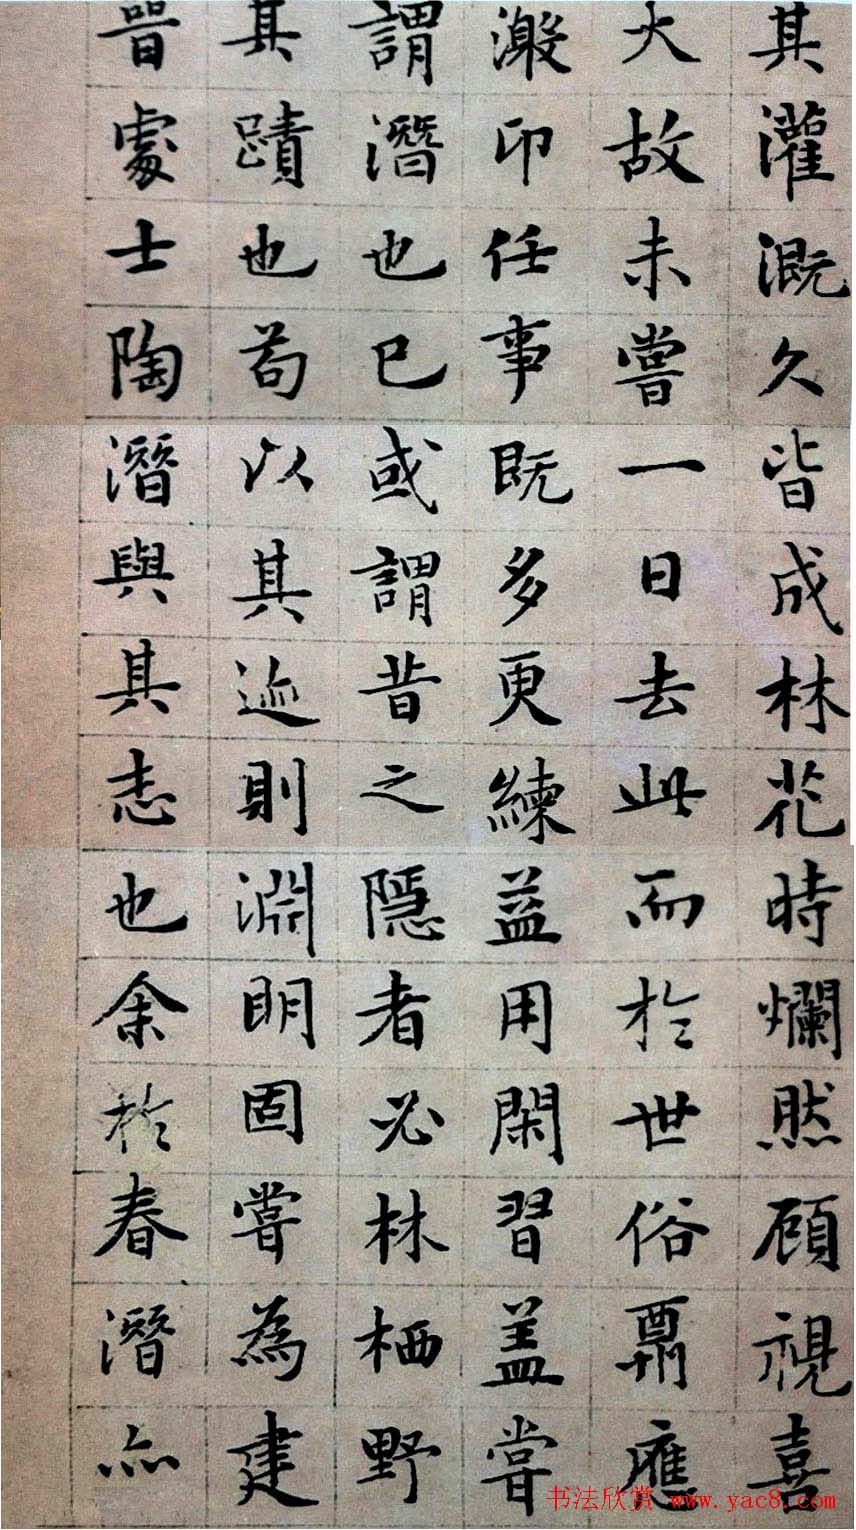 其灌溉久皆成林花時爛然顧視喜
大故未嘗一日去此而於世俗酬應
激卬任事既多更練益用閑習盖嘗
謂潛也已或謂昔之隱者必林栖野
其蹟也苟以其迹則淵明固嘗為建
晉處士陶潛與其志也余於春潛亦
书法欣赏 www.yac8.com